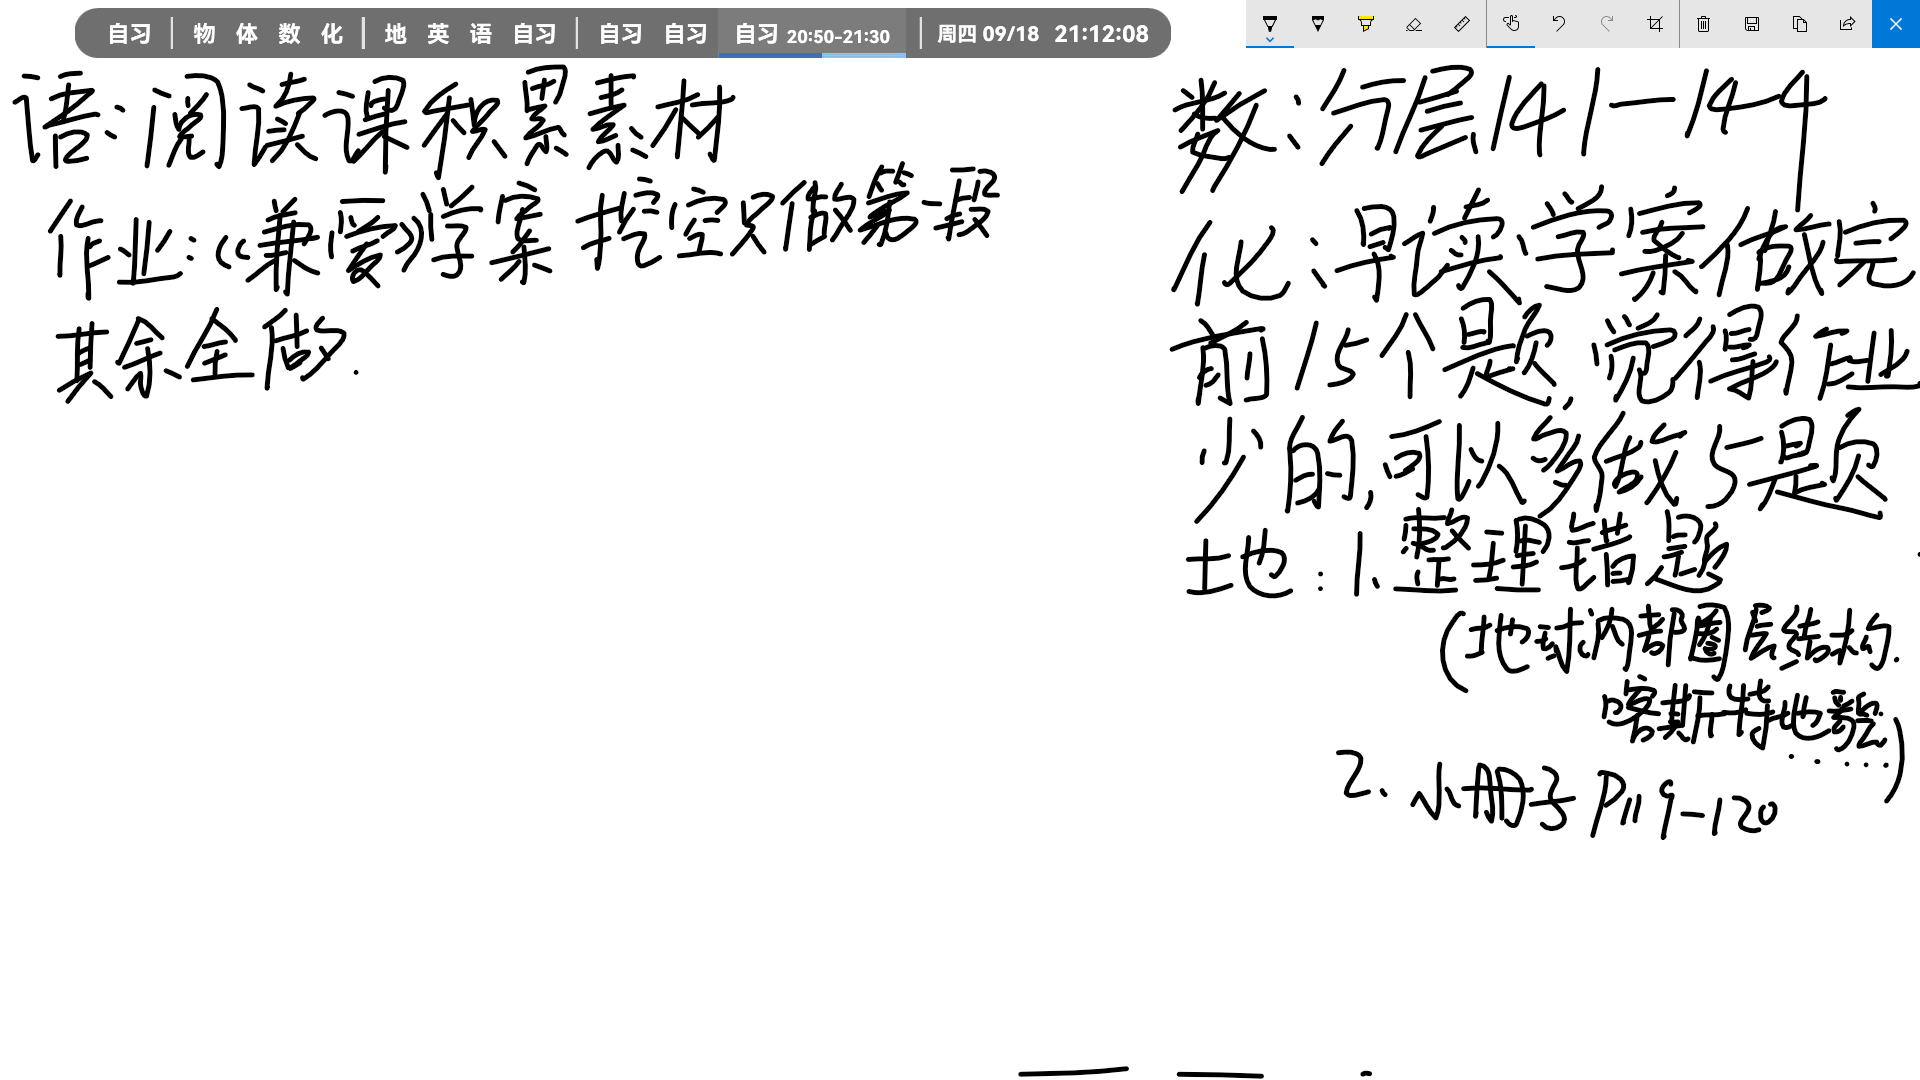 自习 物 体 数 化 地 英 语 自习 自习 自习 自习 20:50-21:30 周四 09/18 21:12:08
语:阅读课积累素材
作业:《兼爱》学案 挖空只做第一段
其余全做.
数:分层141—144
化:早读学案做完
前15个题,觉得作业
少的,可以多做5题
地:1.整理错题
(地球内部圈层结构.
喀斯特地貌......)
2.小册子P119-120